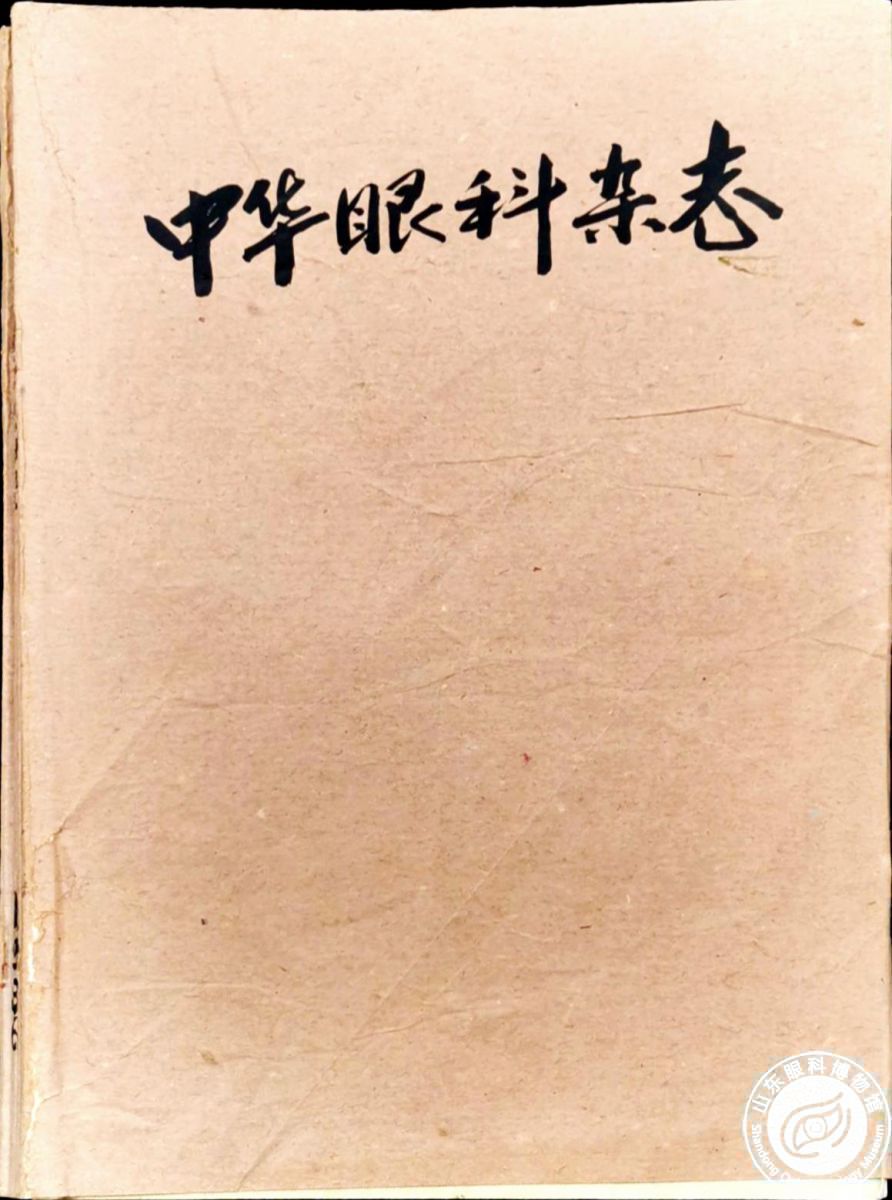 中华眼科杂志
山东眼科博物馆